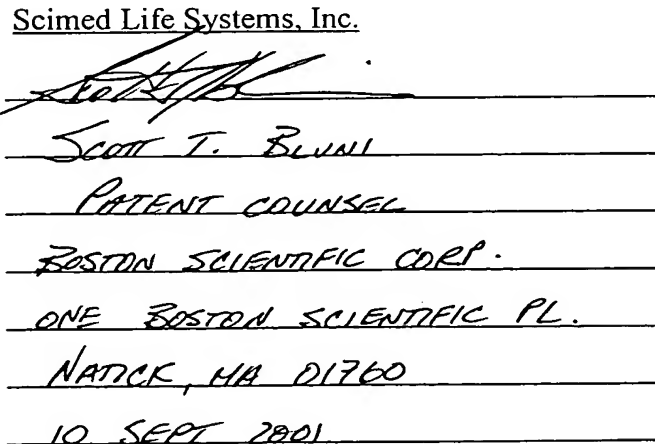 Scimed Life Systems, Inc.
SCOTT T. BLUNI
PATENT COUNSEL
BOSTON SCIENTIFIC CORP.
ONE BOSTON SCIENTIFIC PL.
NATICK, MA 01760
10 SEPT 2001